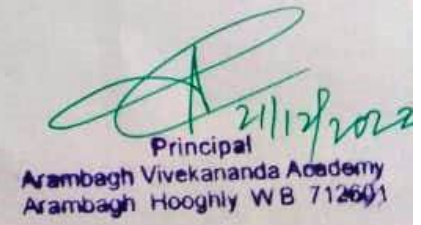 21/12/2022
Principal
Arambagh Vivekananda Academy
Arambagh Hooghly W B 712601